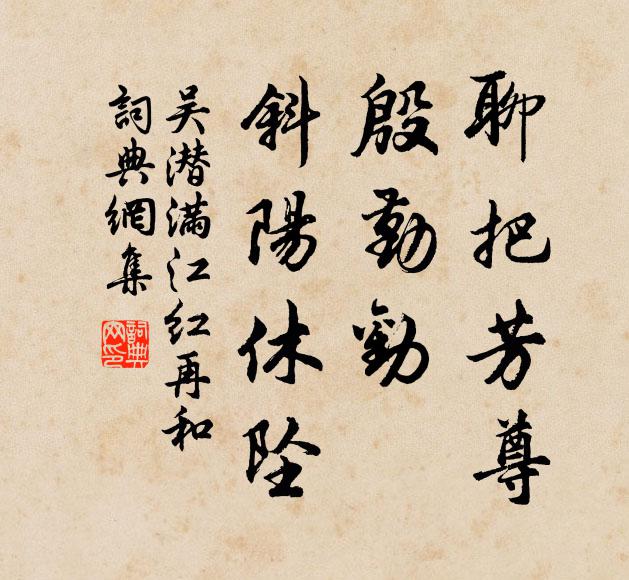 聊把芳尊
殷勤勸
斜陽休墜
吴潜滿江红再和
詞典網集
詞典網印